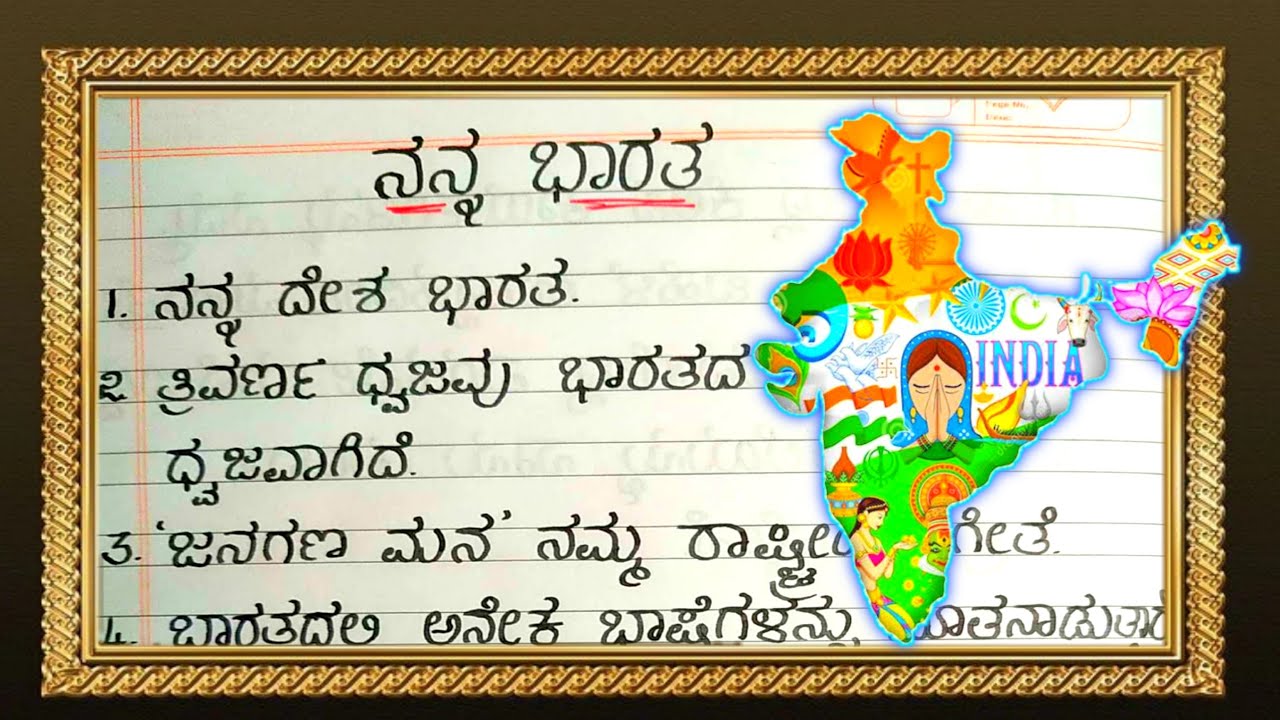 ನನ್ನ ಭಾರತ
1. ನನ್ನ ದೇಶ ಭಾರತ.
೨. ತ್ರಿವರ್ಣ ಧ್ವಜವು ಭಾರತದ
ಧ್ವಜವಾಗಿದೆ.
೩. 'ಜನಗಣ ಮನ' ನಮ್ಮ ರಾಷ್ಟ್ರೀಯ ಗೀತೆ.
೪. ಭಾರತದಲಿ ಅನೇಕ ಭಾಷೆಗಳನ್ನು
INDIA